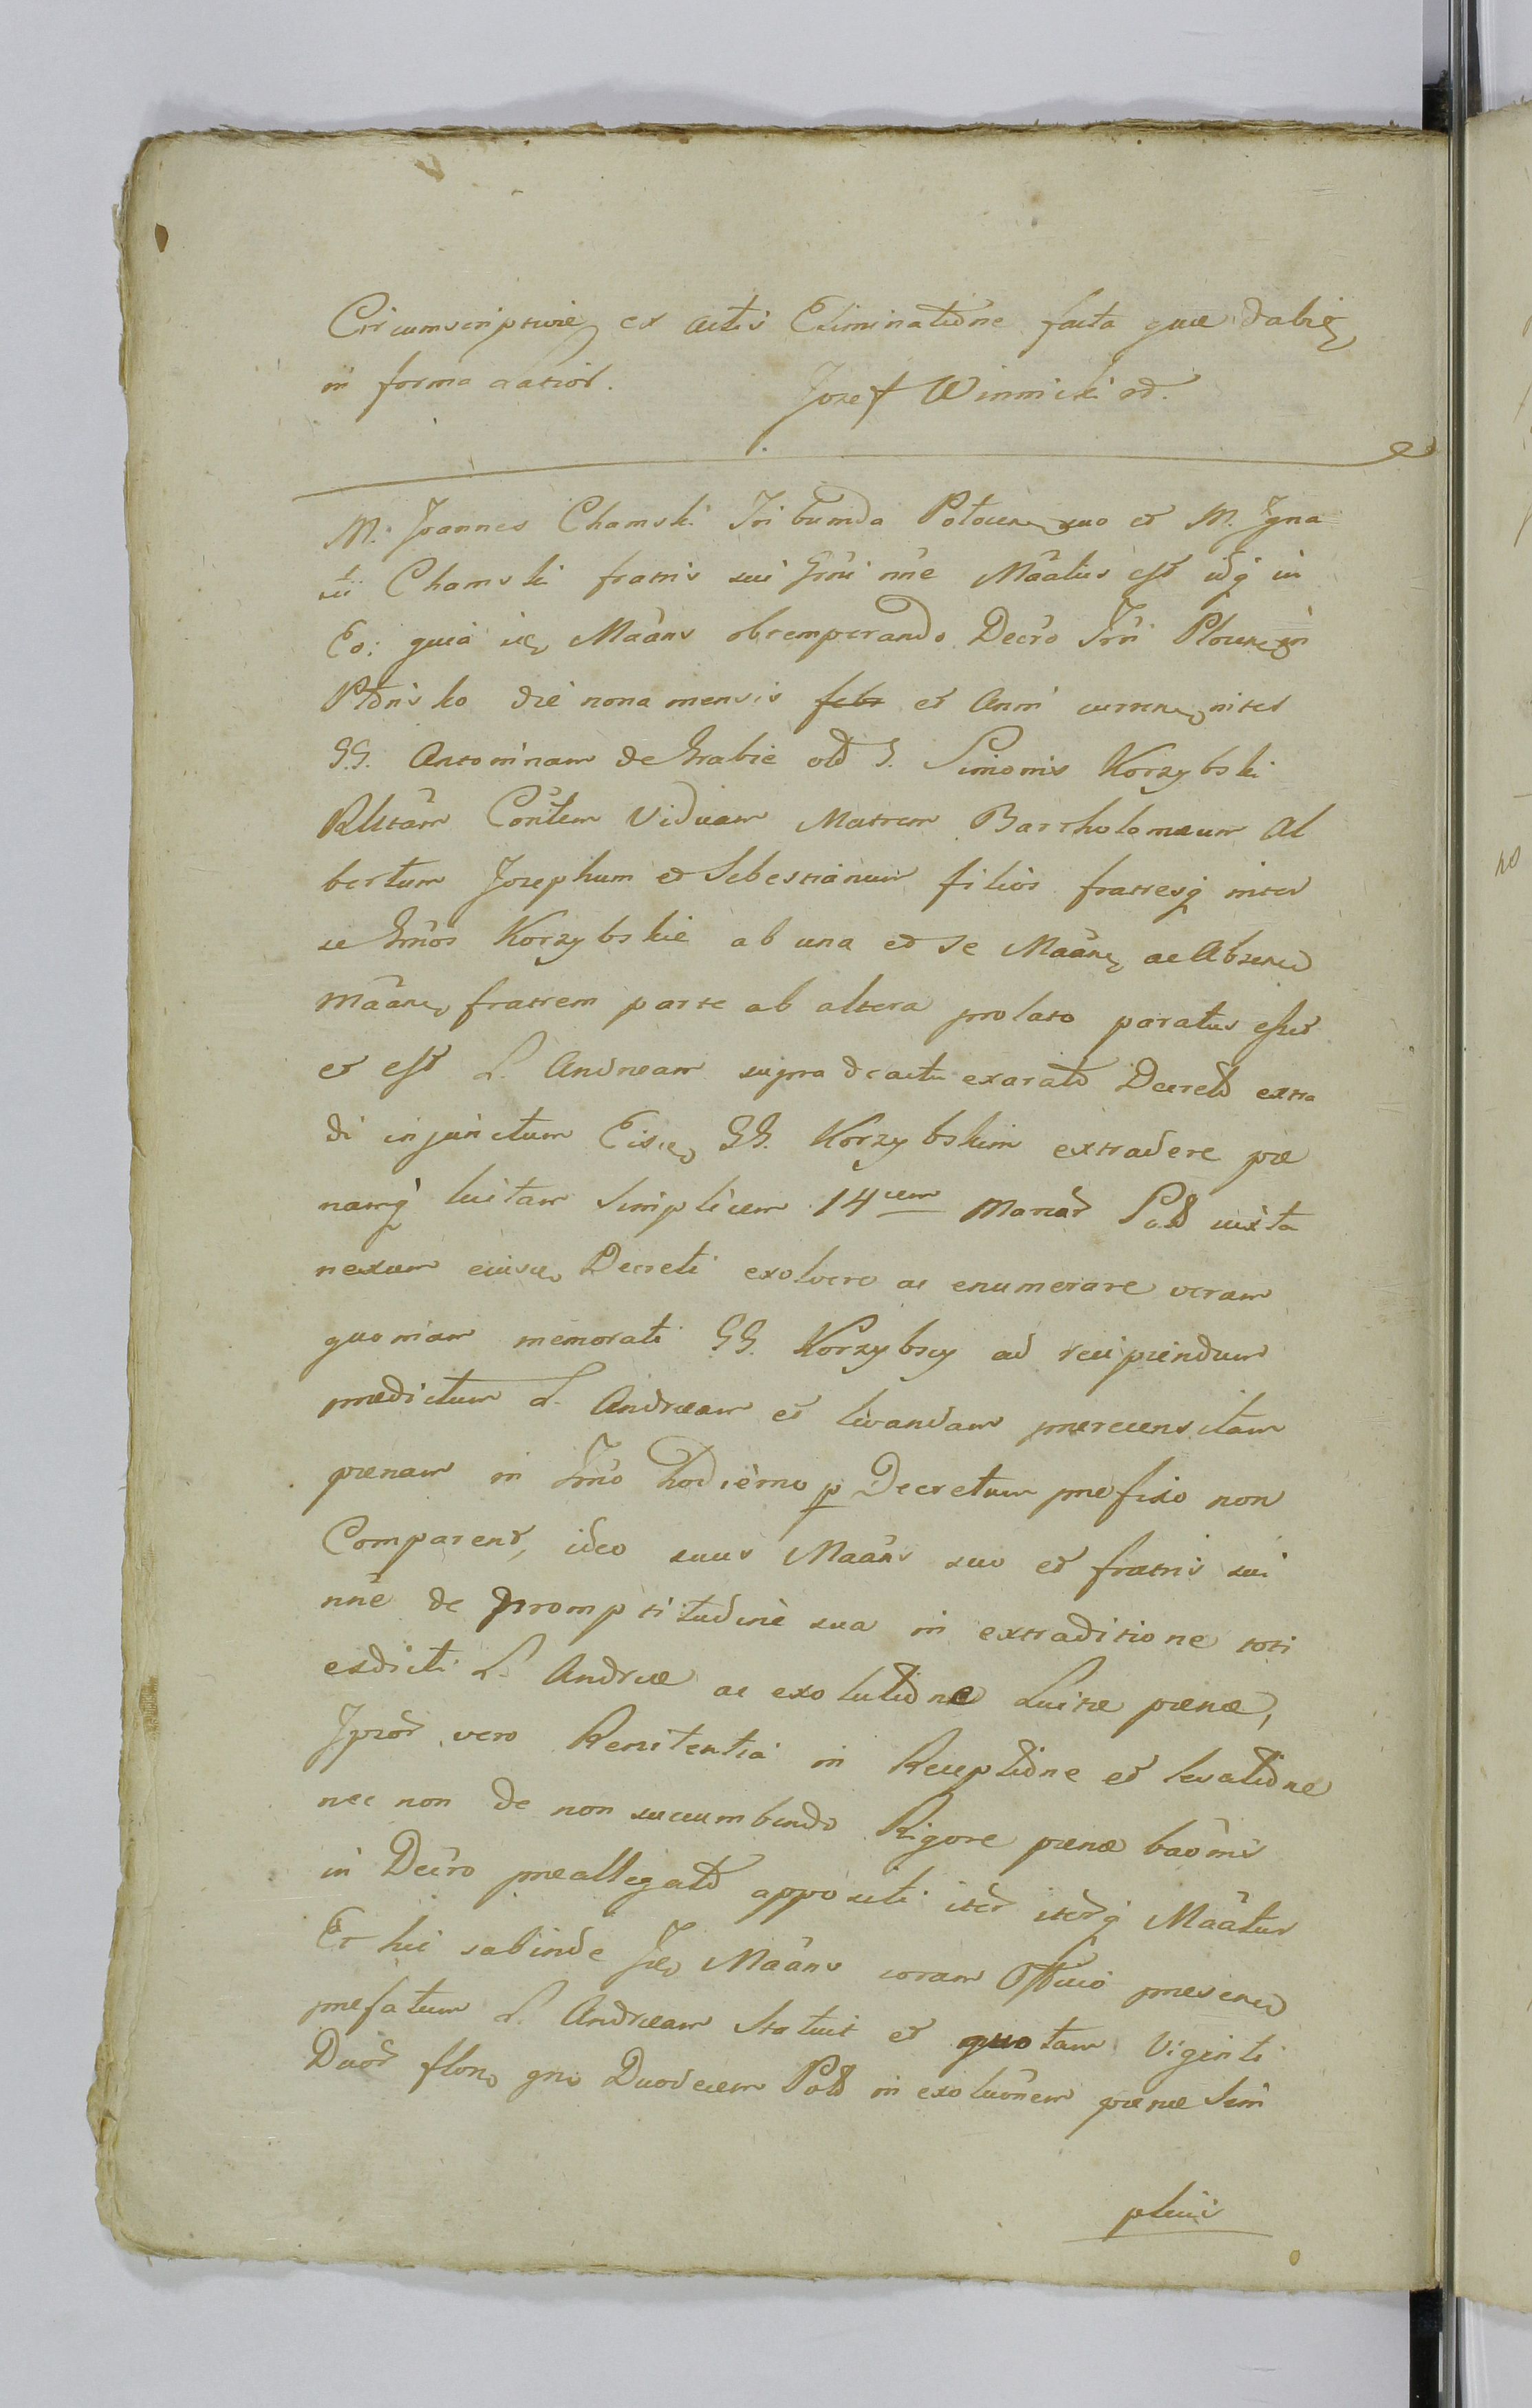 Circumscriptive ex actis Eliminatõne facta quæ dabit
in forma aatior. Jozef Winnicki rd.
M. Joannes Chamski Tribunda Plocen suo et M. Igna
tii Chamski fratris sui Grni nñe Mãatus est idq in
Eo: quia ic Maãns obtemperando Decro Jrñ Plocen in
die nona mensis febr et Anni curren inter
GG. Antoninam de Grabie old G. Simonis Korzybski
Rlitãm Cõrtem Viduam Matrem Bartholomæum Al
bertum Josephum et Sebestianum filios fratresq inter
se Grños Korzybskie ab una et se Maãn ac Absenẽ
Mãan fratrem parte ab altera prolato paratus esset
et est L. Andream supra de actu exarato Decreto extra
di injunctum Eisd GG. Korzybskim extradere pæ
namq luitam Simplicem 14cem Marcar Pold iuxta
nexum eiusd Decreti exolvere ac enumerare veram
quoniam memorati GG. Korzybscy ad recipiendum
prædictum L. Andream et levandam prærecensitam
pænam in Jrño hodierno p Decretum præfixo non
Comparent, ideo suus Maãns suo et fratris sui
nñe de promptitudine sua in extraditione toti
esdicti L. Andreæ ac exolutiõne Luitæ pænæ,
Ipsor vero Renitentia in Receptiõne et levatiõne
nec non de non succumbendo Rigore pænæ baõnis
in Decro præallegato appositi iter iterq Mãatur
Et hic subinde Jd Maãns coram Officio præsenẽ
præfatum L. Andream Statuit et quotam Viginti
Duor flon gro Duodecem Pold in exoluõnem pænæ Sim
plicis